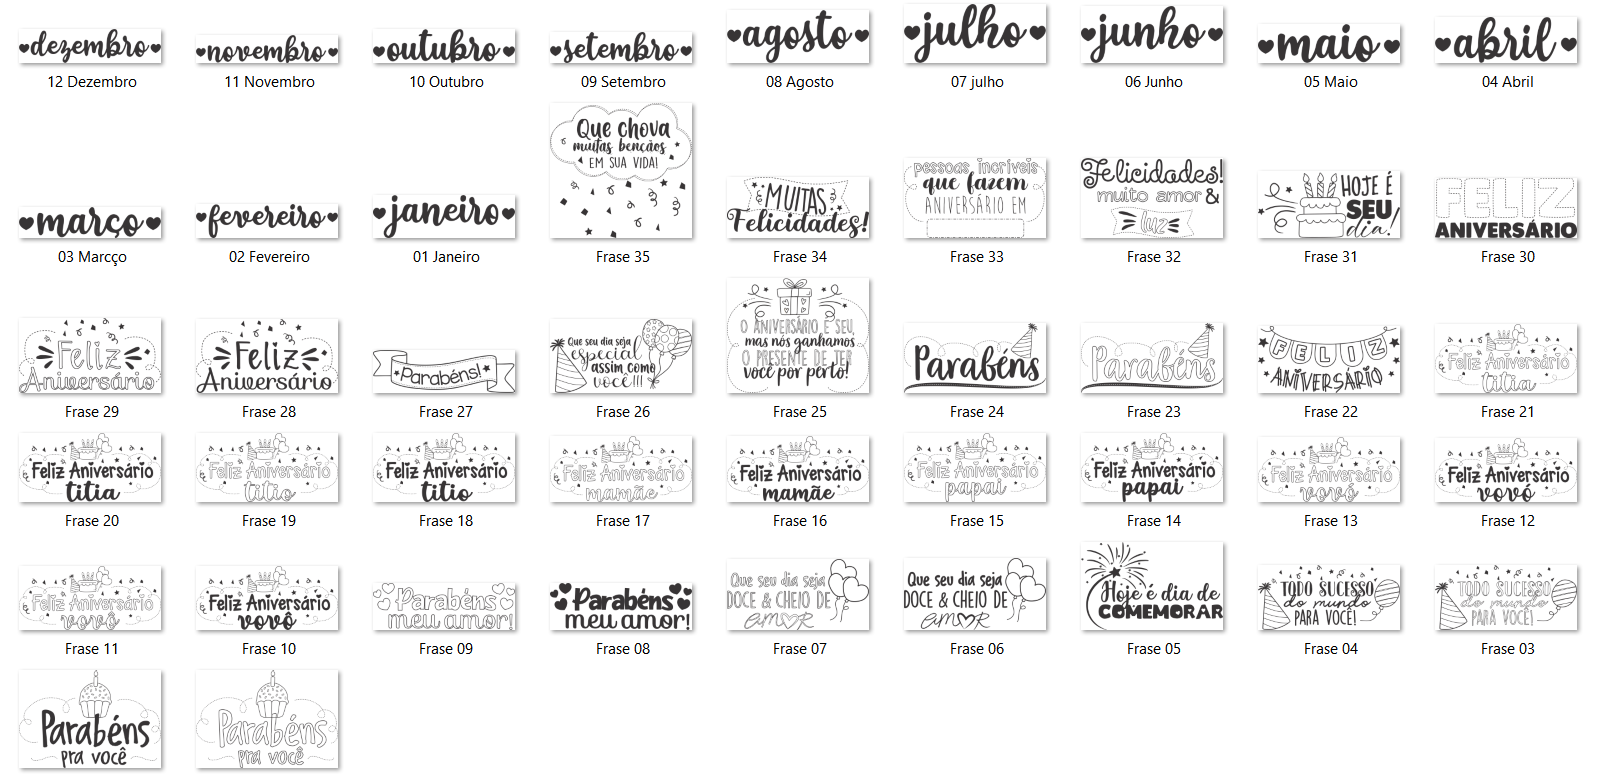 dezembro
12 Dezembro
novembro
11 Novembro
outubro
10 Outubro
setembro
09 Setembro
agosto
08 Agosto
julho
07 julho
junho
06 Junho
maio
05 Maio
abril
04 Abril
março
03 Marcço
fevereiro
02 Fevereiro
janeiro
01 Janeiro
Que chova
muitas bençãos
EM SUA VIDA!
Frase 35
MUITAS
Felicidades!
Frase 34
pessoas incríveis
que fazem
ANIVERSÁRIO EM
Frase 33
Felicidades!
muito amor &
luz
Frase 32
HOJE É
SEU
dia!
Frase 31
FELIZ
ANIVERSÁRIO
Frase 30
Feliz
Aniversário
Frase 29
Feliz
Aniversário
Frase 28
Parabéns!
Frase 27
Que seu dia seja
especial
assim como
VOCÊ!!!
Frase 26
O ANIVERSÁRIO É SEU,
mas nós ganhamos
O PRESENTE DE TER
você por perto!
Frase 25
Parabéns
Frase 24
Parabéns
Frase 23
FELIZ
ANIVERSÁRIO
Frase 22
Feliz Aniversário
titia
Frase 21
Feliz Aniversário
titia
Frase 20
Feliz Aniversário
titio
Frase 19
Feliz Aniversário
titio
Frase 18
Feliz Aniversário
mamãe
Frase 17
Feliz Aniversário
mamãe
Frase 16
Feliz Aniversário
papai
Frase 15
Feliz Aniversário
papai
Frase 14
Feliz Aniversário
vovó
Frase 13
Feliz Aniversário
vovó
Frase 12
Feliz Aniversário
vovô
Frase 11
Feliz Aniversário
vovô
Frase 10
Parabéns
meu amor!
Frase 09
Parabéns
meu amor!
Frase 08
Que seu dia seja
DOCE & CHEIO DE
amor
Frase 07
Que seu dia seja
DOCE & CHEIO DE
amor
Frase 06
Hoje é dia de
COMEMORAR
Frase 05
TODO SUCESSO
do mundo
PARA VOCÊ!
Frase 04
TODO SUCESSO
do mundo
PARA VOCÊ!
Frase 03
Parabéns
pra você
Parabéns
pra você